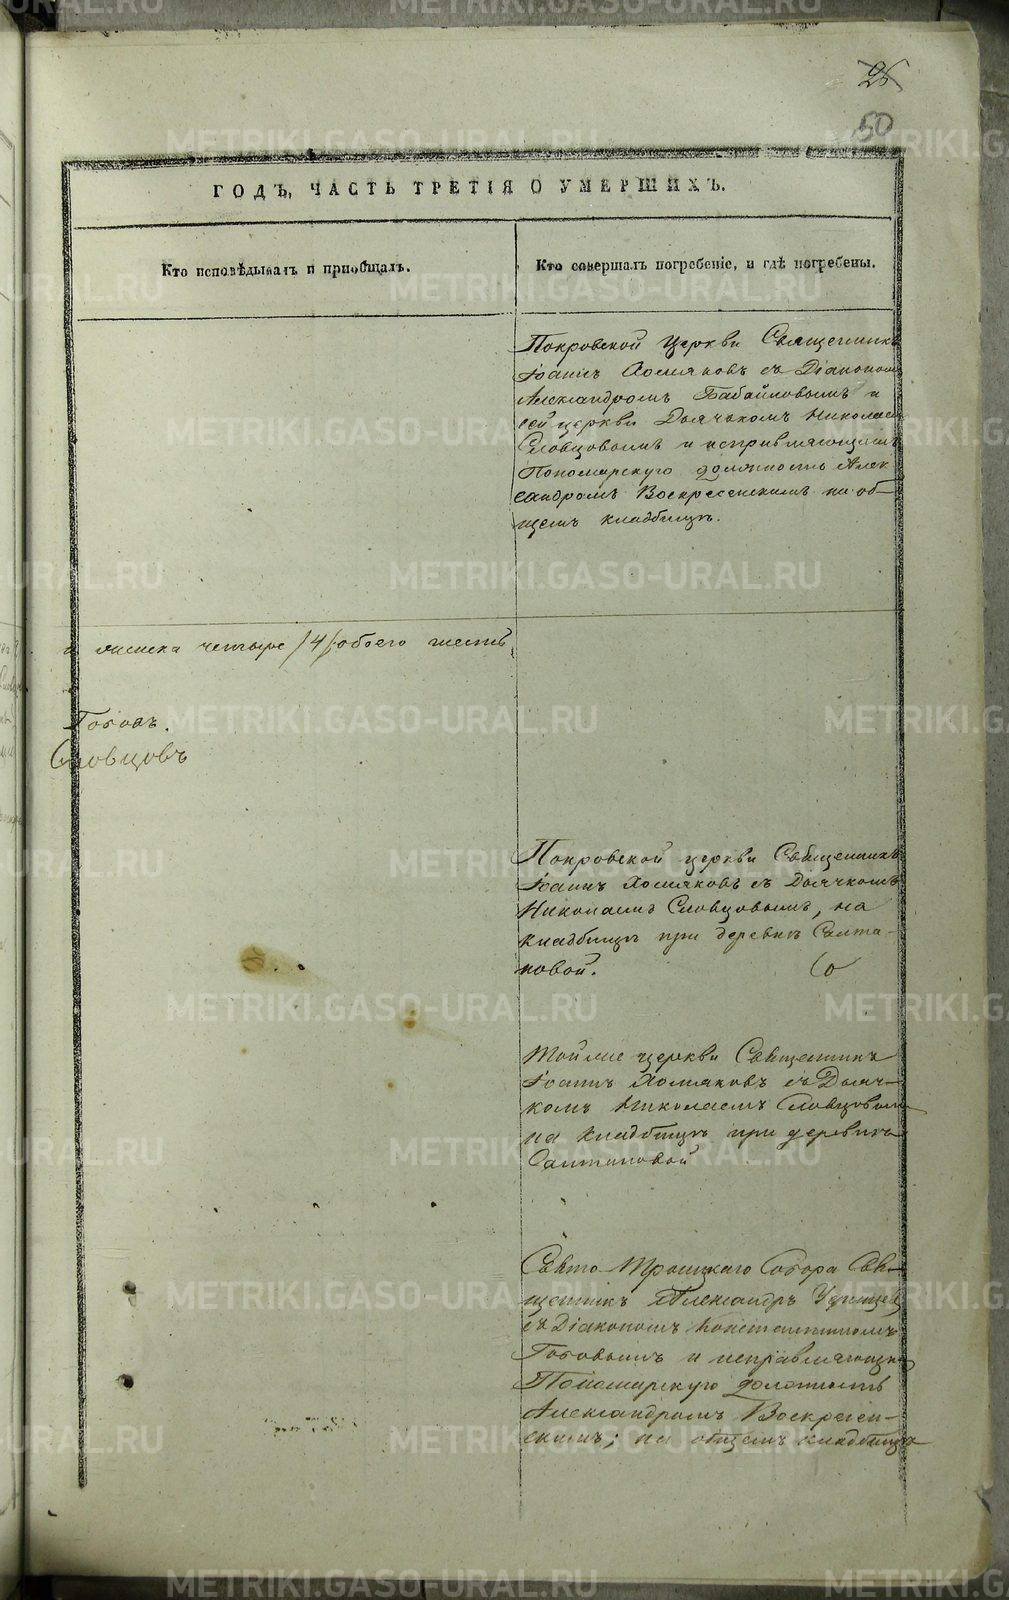 26
50
ГОДЪ, ЧАСТЬ ТРЕТІЯ О УМЕРШИХЪ.
Кто исповѣдывалъ и пріобщалъ.
Кто совершалъ погребеніе, и гдѣ погребены.
Покровской Церкви Священникъ
Іоаннъ Хомяковъ съ Діакономъ
Александромъ Бабайловымъ и
сей церкви Дьячкомъ Николаемъ
Словцовымъ и исправляющимъ
Пономарскую должность Алек
сандромъ Воскресенскимъ на об-
щемъ кладбищѣ.
женска четыре /4/ обоего шесть
Гобовъ.
Словцовъ
Покровской церкви Священникъ
Іоаннъ Хомяковъ съ Дьячкомъ
Николаемъ Словцовымъ, на
кладбищѣ при деревнѣ Салта-
новой.
Тойже церкви Священникъ
Іоаннъ Хомяковъ съ Дьяч-
комъ Николаемъ Словцовымъ
на кладбищѣ при деревнѣ
Салтановой
Свято Троицкаго Собора Свя-
щенникъ Александръ
съ Діакономъ Константиномъ
Гобовымъ и исправляющимъ
Пономарскую должность
Александромъ Воскресен-
скимъ; на общемъ кладбищѣ
METRIKI.GASO-URAL.RU